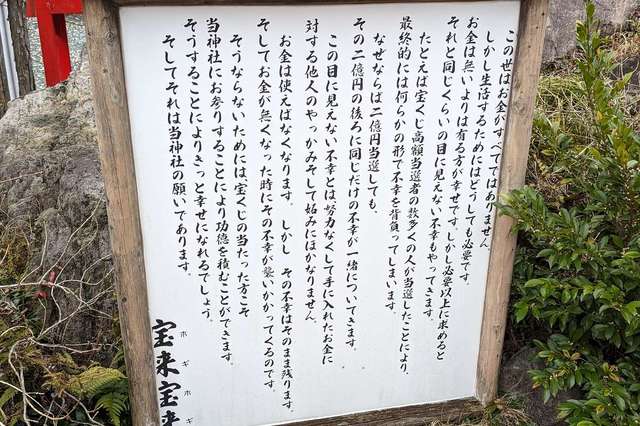 この世はお金がすべてではありません
しかし生活するためにはどうしても必要です。
お金は無いよりは有る方が幸せです。しかし必要以上に求めると
それと同じくらいの目に見えない不幸もやってきます。
たとえば宝くじ高額当選者の数多くの人が当選したことにより、
最終的には何らかの形で不幸を背負ってしまいます。
なぜならば二億円当選しても、
その二億円の後ろに同じだけの不幸が一緒についてきます。
この目に見えない不幸とは努力なくして手に入れたお金に
対する他人のやっかみそして妬みにほかなりません。
お金は使えばなくなります。しかし その不幸はそのまま残ります。
そしてお金が無くなった時にその不幸が襲いかかってくるのです。
そうならないためには宝くじの当たった方こそ
当神社にお参りすることにより功徳を積むことができます。
そうすることによりきっと幸せになれるでしょう。
そしてそれは当神社の願いであります。
宝来宝来
ホギホギ